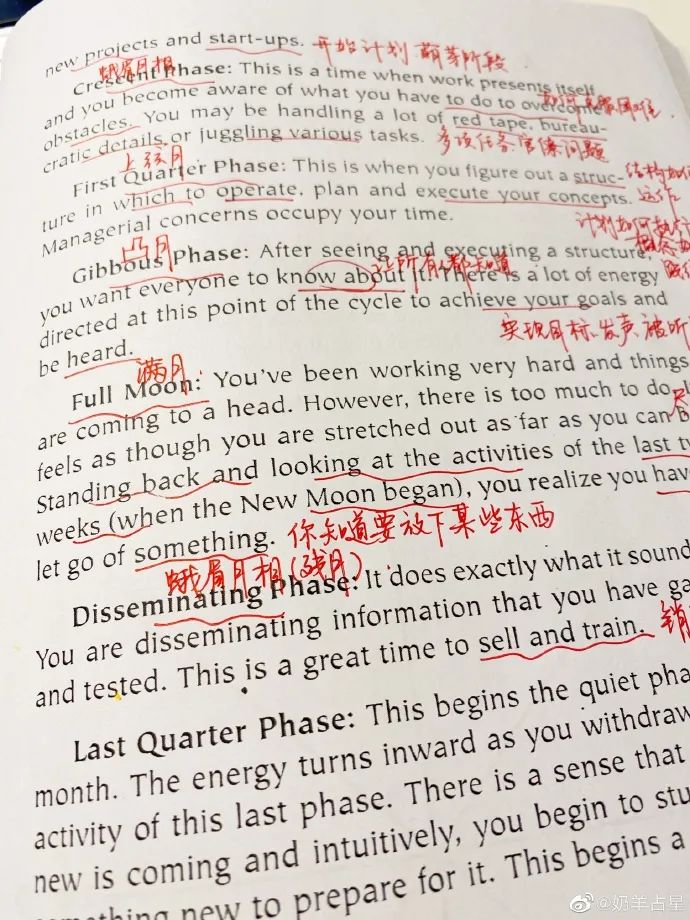 new projects and start-ups. 开始计划 萌芽阶段
蛾眉月相
Crescent Phase: This is a time when work presents itself
and you become aware of what you have to do to overcome
obstacles. You may be handling a lot of red tape, bureau-
cratic details or juggling various tasks. 多项任务官僚问题
上弦月
First Quarter Phase: This is when you figure out a struc-
ture in which to operate, plan and execute your concepts. 运作
Managerial concerns occupy your time.
凸月
Gibbous Phase: After seeing and executing a structure,
you want everyone to know about it. There is a lot of energy
让所有人都知道
directed at this point of the cycle to achieve your goals and
be heard.
实现目标,发声,被听
满月
Full Moon: You've been working very hard and things
are coming to a head. However, there is too much to do.
feels as though you are stretched out as far as you can
Standing back and looking at the activities of the last
weeks (when the New Moon began), you realize you
let go of something. 你知道要放下某些东西
蛾眉月相(残月)
Disseminating Phase: It does exactly what it
You are disseminating information that you have
and tested. This is a great time to sell and train. 销
Last Quarter Phase: This begins the quiet
month. The energy turns inward as you
activity of this last phase. There is a sense that
new is coming and intuitively, you begin to
new to prepare for it. This begins a
@奶羊占星